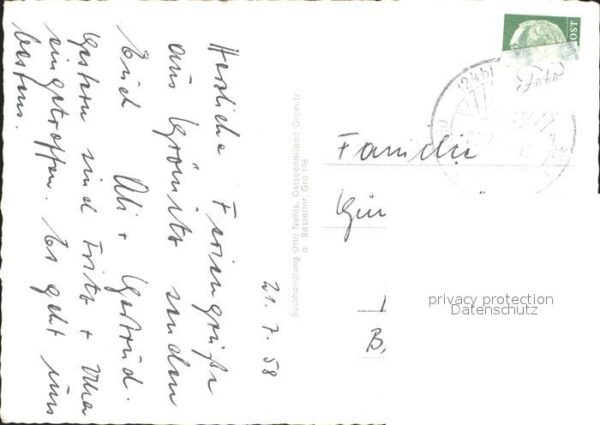 Herzliche Feriengrüße
aus Grömitz senden
Euch Abi + Gertrud.
Gestern sind Fritz +
eingetroffen. Es geht uns
bestens.
21. 7. 58
Buchhandlung Otto Nehls, Ostseeheilbad Grömitz
Bestellnr. Grö 196
Familie
B,
privacy protection
Datenschutz
(24b)
POST